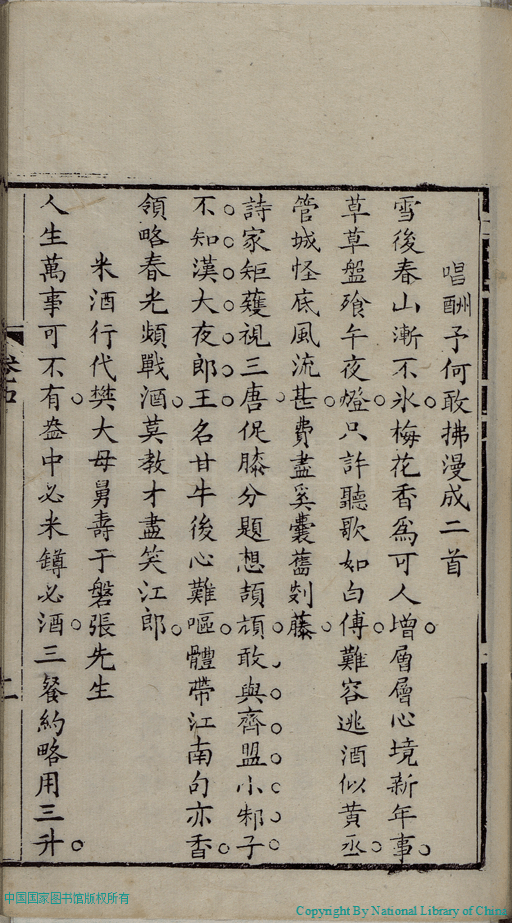 唱酬予何敢拂漫成二首
雪後春山漸不氷梅花香爲可人增層層心境新年事
草草盤飱午夜燈只許聽歌如白傅難容逃酒似黄丞
管城怪底風流甚費盡奚囊舊剡藤
詩家矩蒦視三唐促膝分題想頡頏敢與齊盟小邾子
不知漢大夜郎王名甘牛後心難嘔體帶江南句亦香
領略春光頻戰酒莫教才盡笑江郎
米酒行代樊大母舅壽于磐張先生
人生萬事可不有盎中必米罇必酒三餐約略用三升
中国国家图书馆版权所有
Copyright By National Library of China